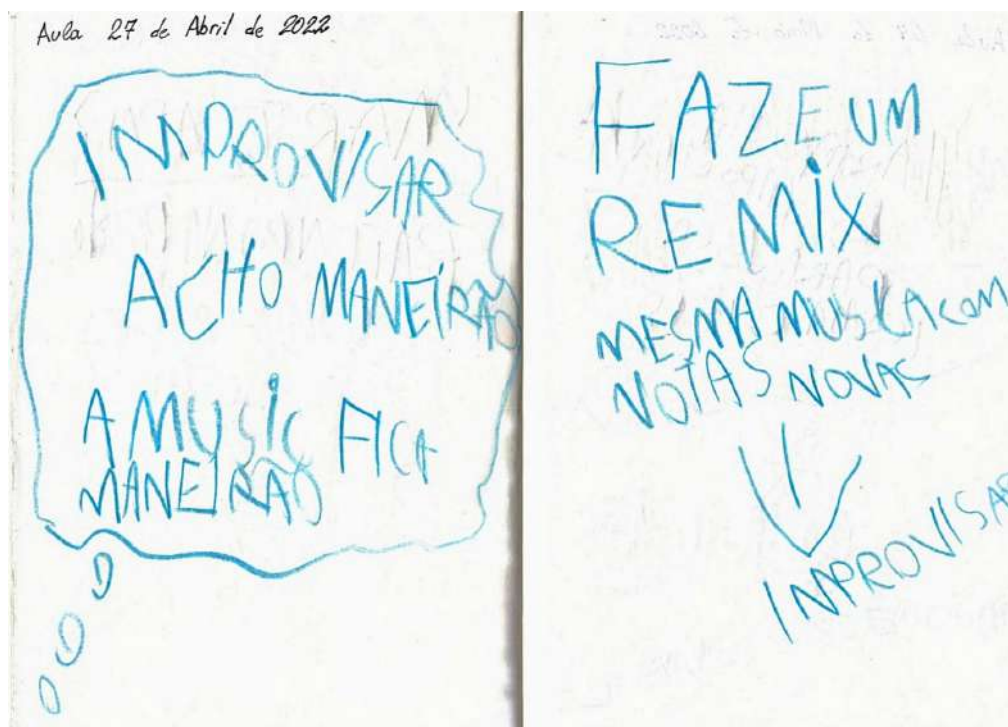 Aula 27 de Abril de 2022
IMPROVISAR
ACHO MANEIRÃO
A MUSIC FICA
MANEIRÃO
FAZE UM
REMIX
MESMA MUSICA COM
NOTAS NOVAS
IMPROVISAR